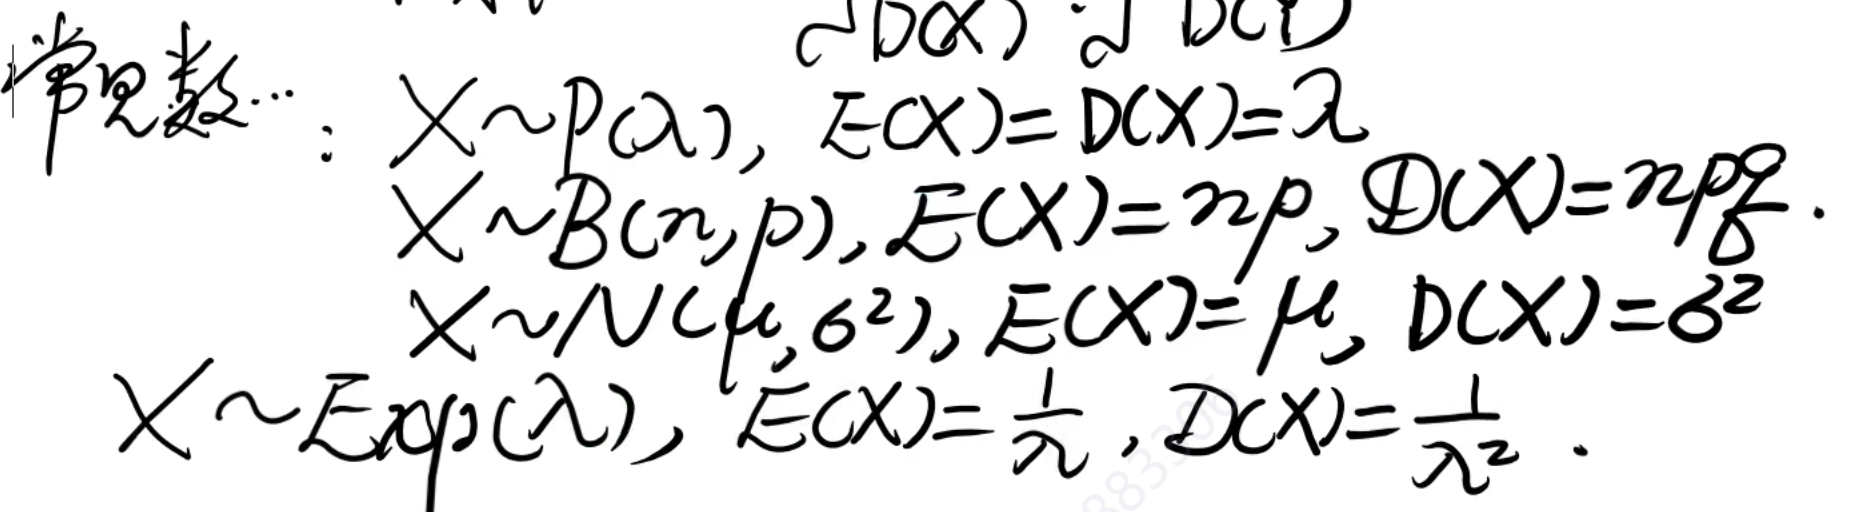 √D(X) · √D(Y)
常见数…: X~P(λ), E(X)=D(X)=λ
X~B(n,p), E(X)=np, D(X)=npq.
X~N(μ,σ²), E(X)=μ, D(X)=σ²
X~Exp(λ), E(X)=1/λ, D(X)=1/λ².